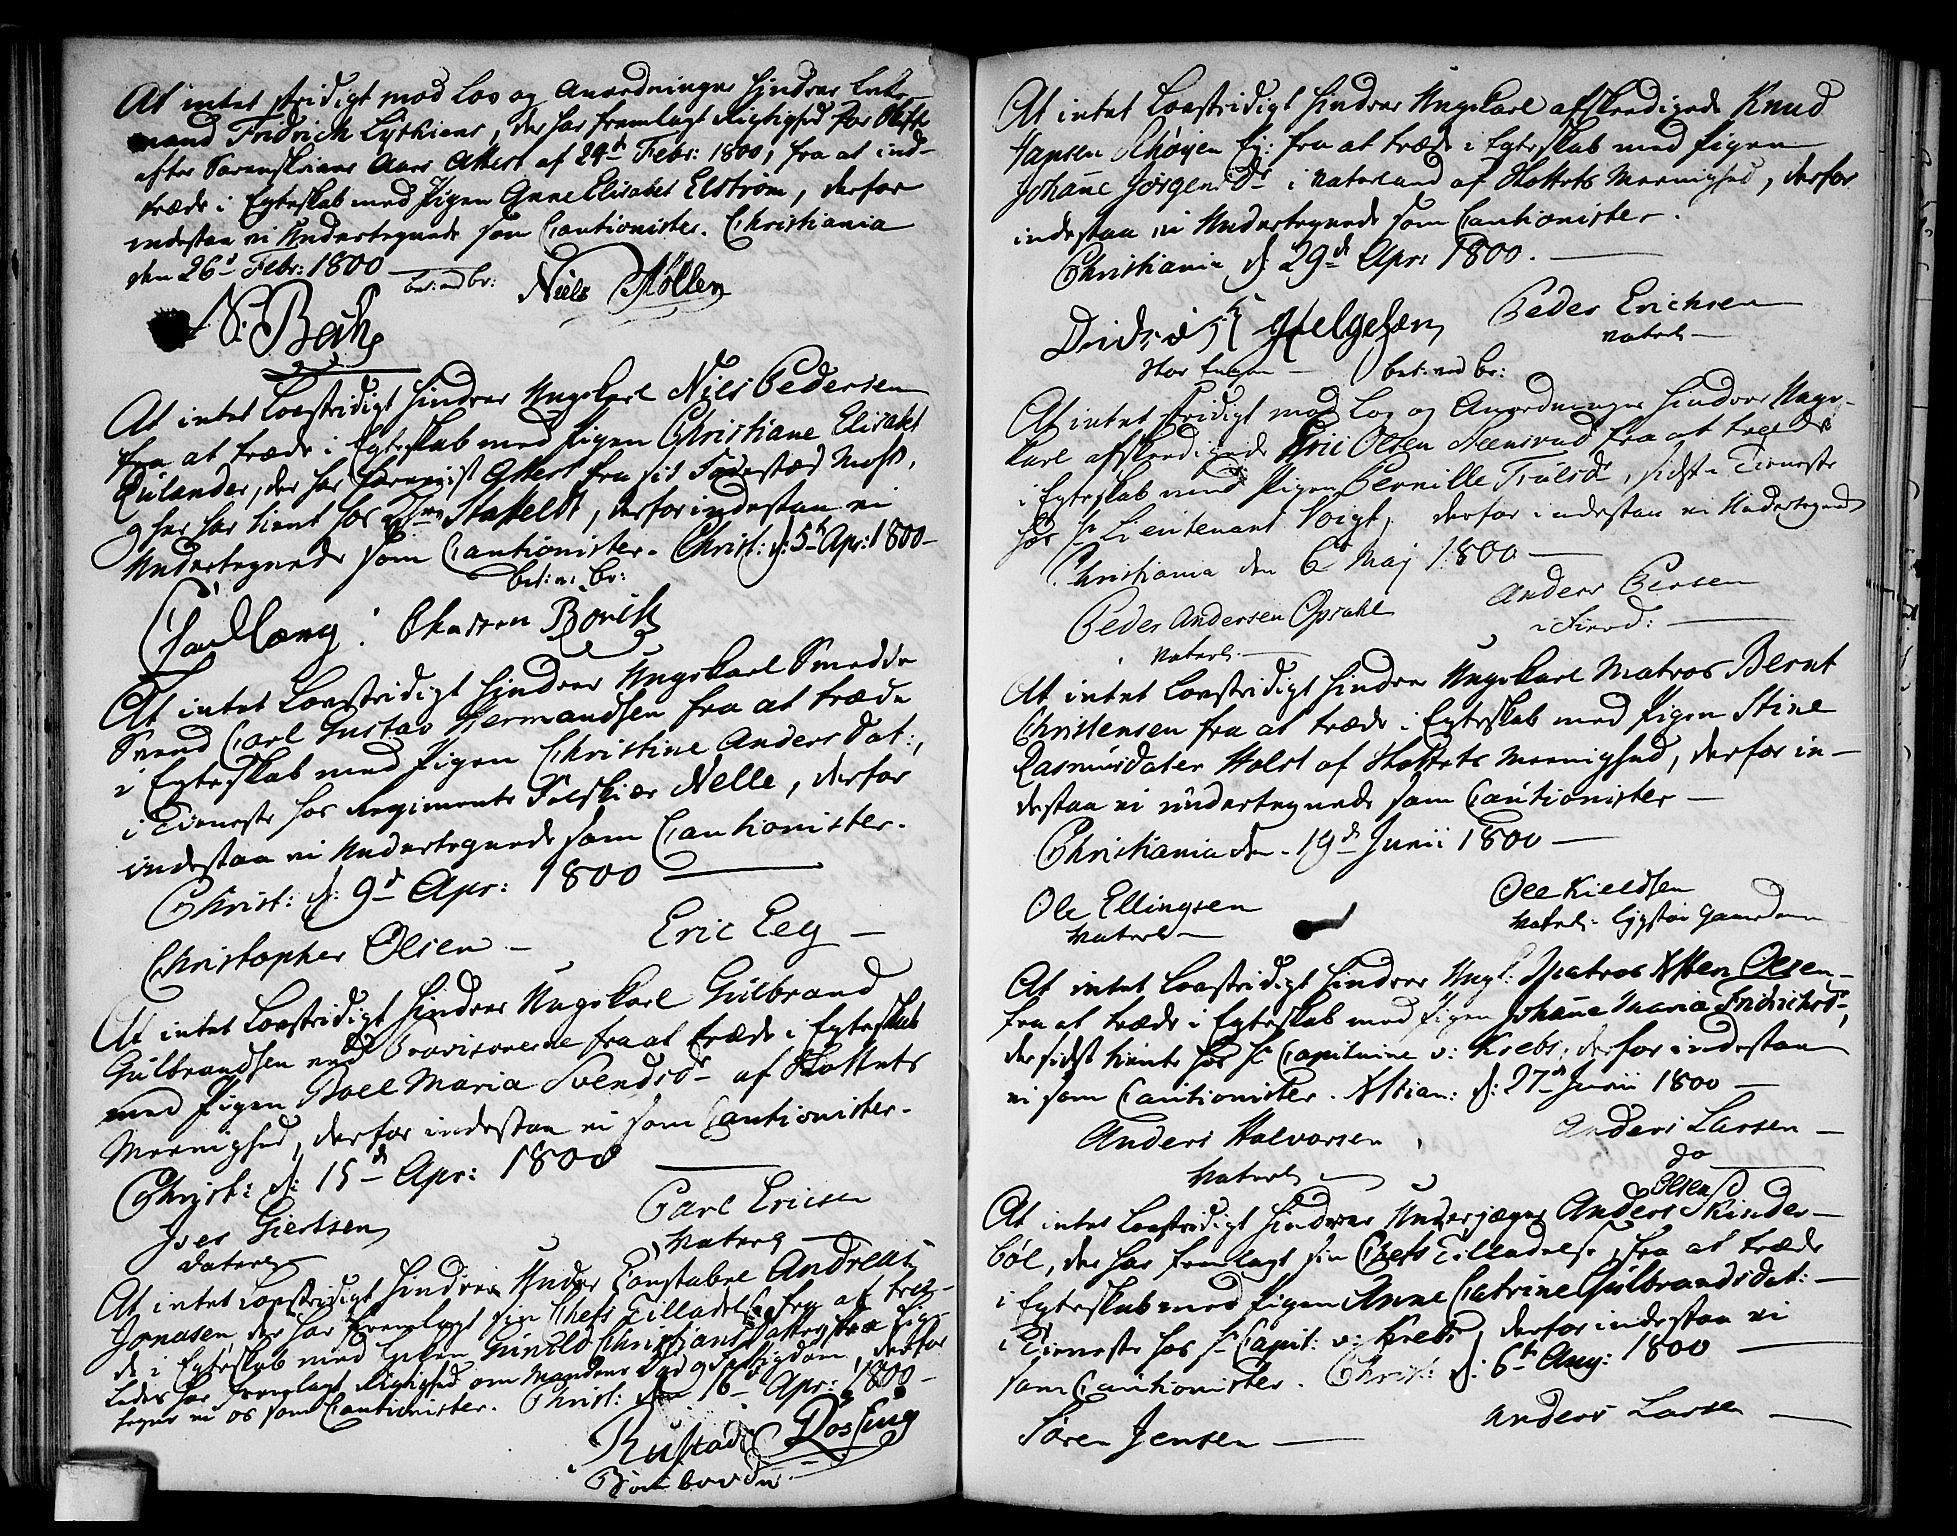 At intet stridigt mod Lov og Anordninger hindrer Enke-
mand Fridrich Lyskiens, der har fremlagt Rigtighed for Skifte
efter Sorenskriver Attest af 24d Febr: 1800, fra at ind-
træde i Egteskab med Pigen Anne Elisabet Elstrøm, derfor
indestaa vi Undertegnede som Cautionister. Christiania
den 26d Febr: 1800
bet: ved br: Niels Møller
N: Bach
At intet Lovstridigt hindrer Ungekarl Niels Pedersen
fra at træde i Egteskab med Pigen Christiane Elisabet
der har Attest fra sit Fødested Moss,
og her har tient hos Staffeldt, derfor indestaa vi
Undertegnede som Cautionister. Christ: d: 5t Apr: 1800-
bet: v: br:
At intet Lovstridigt hindrer Ungekarl Smedde
Svend Carl Gustav Hermandsen fra at træde
i Egteskab med Pigen Christine Anders dat:,
i Tieneste hos Regiments Feldskiær Nelle, derfor
indestaa vi Undertegnede som Cautionister.
Christ: d: 9d Apr: 1800
Christopher Olsen - Eric Eeg -
At intet Lovstridigt hindrer Ungekarl Gülbrand
Gülbrandsen ved Provisoverne fra at træde i Egteskab
med Pigen Boel Maria Svendsdr af Slottets
Meenighed, derfor indestaa vi som Cautionister.
Christ: d: 15d Apr: 1800
Iver Giertsen Carl Ericsen
Vaterl Vaterl
At intet Lovstridigt hindrer Under Constabel Andreas
Jonasen, der har fremlagt sin Chefs Tilladelse fra at træ-
de i Egteskab med Enken Gunild Christians Datter, som lige-
ledes har fremlagt Rigtighed om Mandens Død og Fattigdom, derfor
tegne vi os som Cautionister. Christ: den 16 Apr: 1800-
Rustad Røssing
At intet Lovstridigt hindrer Ungekarl afskedigede Knud
Hansen Schøyen fra at træde i Egteskab med Pigen
Johañe Jørgensdr i Vaterland af Slottets Meenighed, derfor
indestaa vi Undertegnede som Cautionister.
Christiania d: 29d Apr: 1800.
Didrich Helgesen Peder Erichsen
Vaterl
Stor Engen - bet: ved br:
At intet stridigt mod Lov og Anordninger hindrer Unge-
karl afskedigede Eric Olsen Steensrud fra at træde
i Egteskab med Pigen Pernille Trulsdr, sidst i Tieneste
hos Hr Lieutenant Voigt, derfor indestaa vi Undertegnede
Christiania den 6t Maj 1800
Peder Andersen Opsahl Anders Persen
Vaterl.
At intet Lovstridigt hindrer Ungekarl Matros Bernt
Christensen fra at træde i Egteskab med Pigen Stine
Rasmusdater Holst af Slottets Meenighed, derfor in-
destaa vi undertegnede som Cautionister
Christiania den. 19d Junii 1800
Ole Ellingsen Ole Kieldsen
Vaterl Vaterl.
At intet Lovstridigt hindrer Ungk: Matros Asten Olsen
fra at træde i Egteskab med Pigen Johañe Maria Fridrichsdr,
der sidst tiente hos Hr Capitaine v: Krebs; derfor indestaa
vi som Cautionister. Xstian: d: 27d Junii 1800
Anders Halvorsen Anders Larsen
Vaterl do
Olsen
At intet Lovstridigt hindrer Underjæger Anders Skinder-
böl, der har fremlagt sin Chefs Tilladelse, fra at træde
i Egteskab med Pigen Anne Catrine Gülbrandsdat:
i Tieneste hos Hr Capit: v: Krebs, derfor indestaa vi
som Cautionister. Christ: d: 6t Aug: 1800
Søren Jensen Anders Larsen